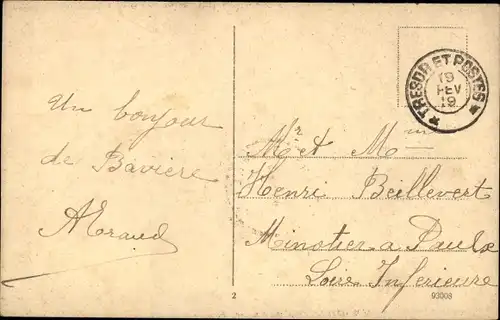 Un bonjour
de Bavière
TRESOR ET POSTES
19
FEV
19
Mr et Mme
Henri Beillevert
Minotier à Paulx
Loire Inférieure
2
93008